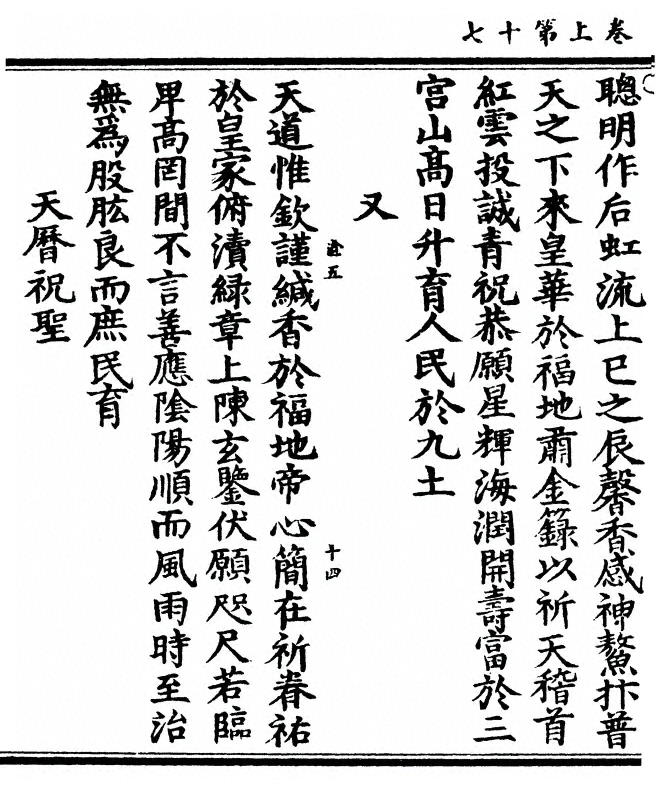 卷上第十七
聰明作后虹流上巳之辰馨香感神鰲抃普
天之下來皇華於福地肅金籙以祈天稽首
紅雲投誠青祝恭願星輝海潤開壽富於三
宮山高日升育人民於九土
又
逾五
十四
天道惟欽謹緘香於福地帝心簡在祈眷祐
於皇家俯瀆緑章上陳玄鑒伏願咫尺若臨
卑高罔間不言善應陰陽順而風雨時至治
無爲股肱良而庶民育
天曆祝聖